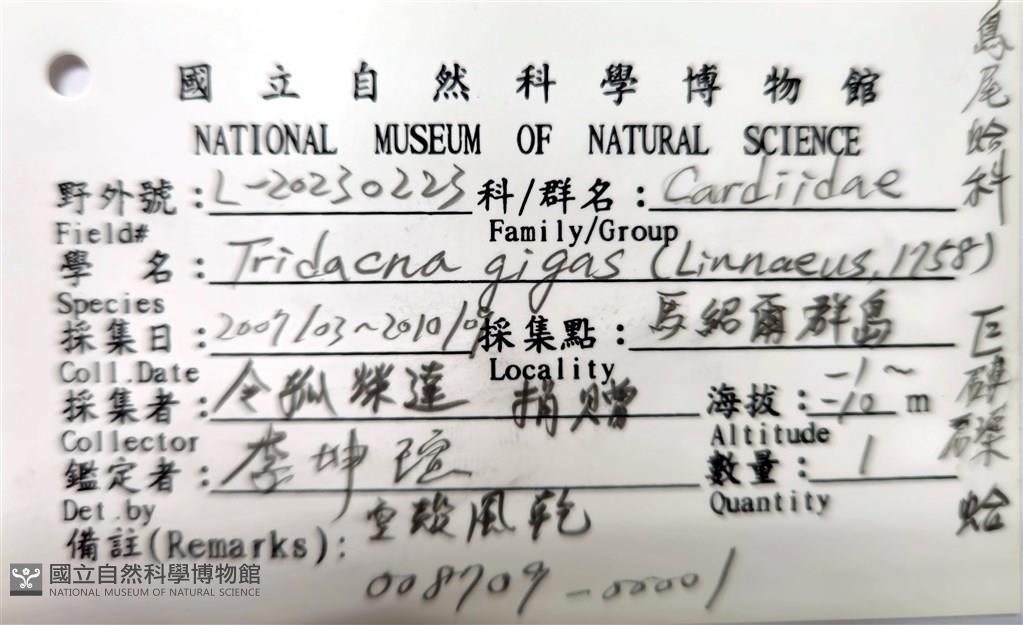 國立自然科學博物館
NATIONAL MUSEUM OF NATURAL SCIENCE
野外號：L-20230223 科/群名：Cardiidae
Field# Family/Group
學 名：Tridacna gigas (Linnaeus, 1758)
Species
採集日：2007/03~2010/09 採集點：馬紹爾群島
Coll.Date Locality
採集者：令狐榮達 捐贈 海拔：-1~-10 m
Collector Altitude
鑑定者：李坤瑄 數量：1
Det.by Quantity
備註(Remarks)：空殼風乾
008709-00001
鳥尾蛤科
巨硨磲蛤
國立自然科學博物館
NATIONAL MUSEUM OF NATURAL SCIENCE